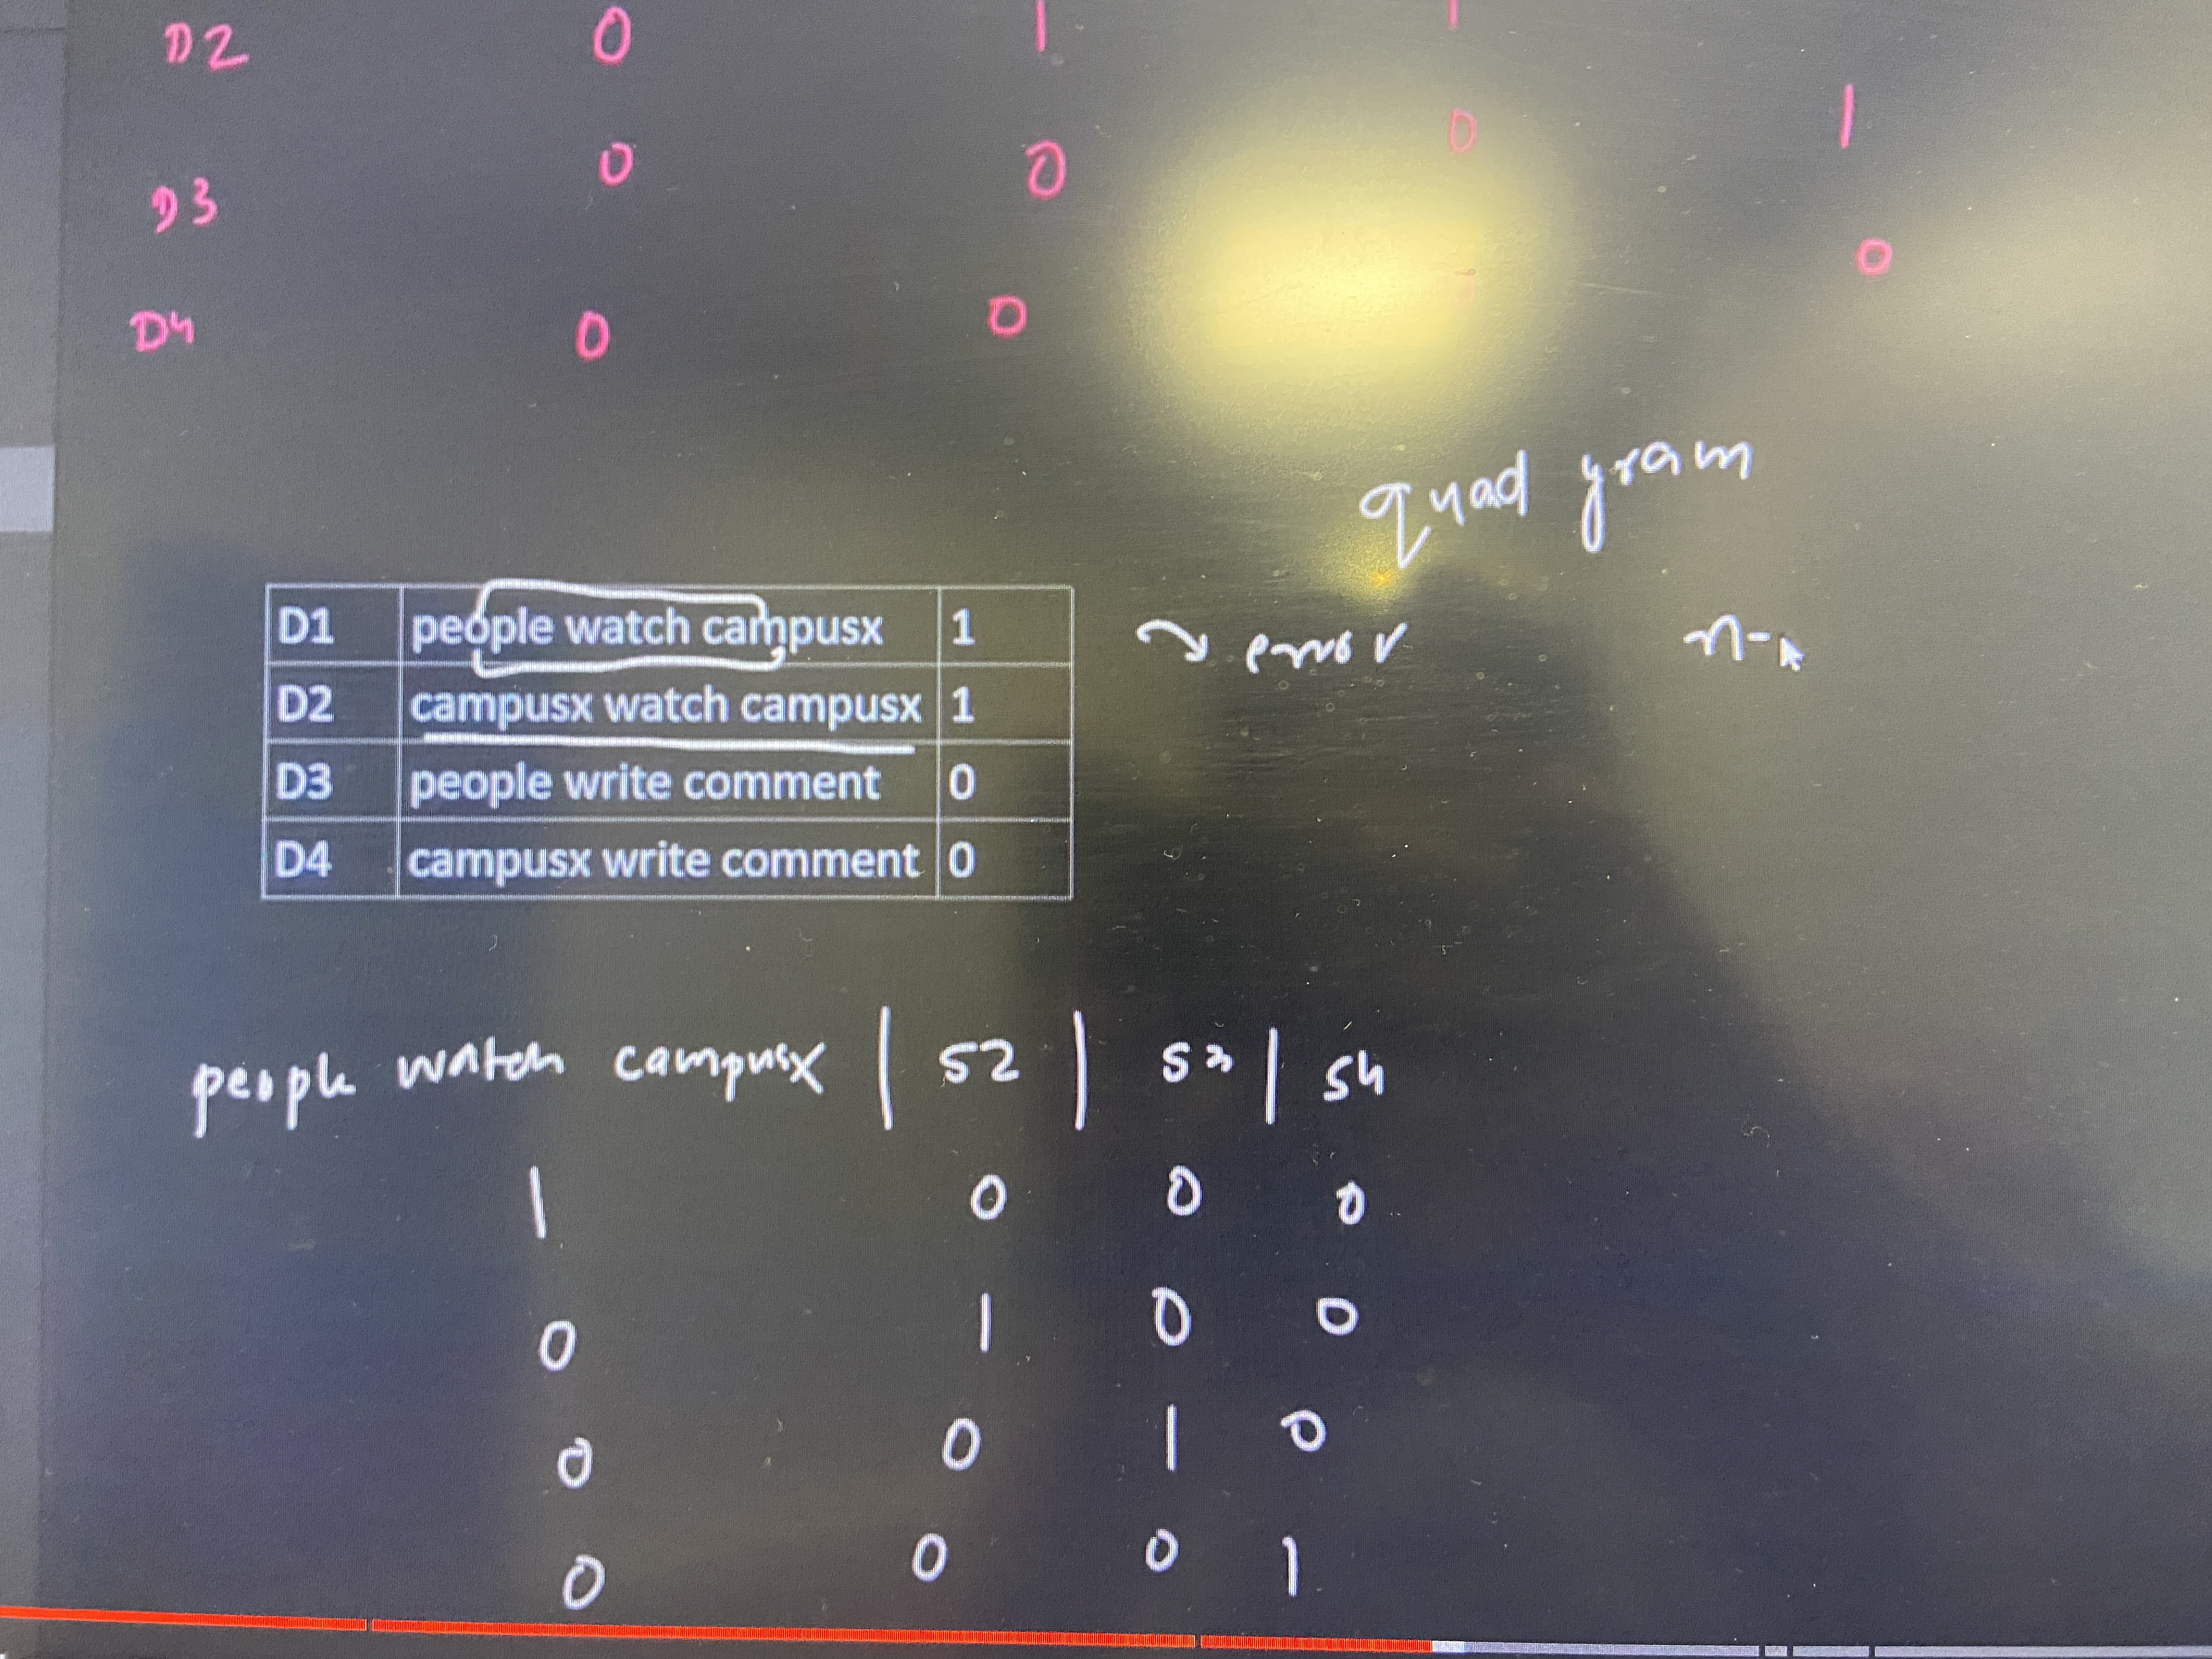 D2 0 1 1
D3 0 0 0 1
D4 0 0 0
quad gram
D1 people watch campusx 1
error n-
D2 campusx watch campusx 1
D3 people write comment 0
D4 campusx write comment 0
people watch campusx | S2 | S3 | S4
1 0 0 0
0 1 0 0
0 0 1 0
0 0 0 1